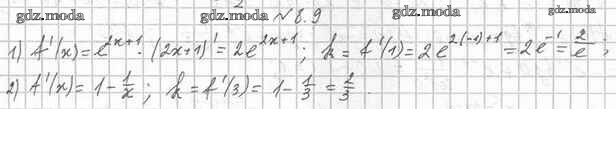 gdz.moda gdz.moda № 8.9 gdz.moda gdz.moda
1) f'(x) = e^{2x+1} · (2x+1)' = 2e^{2x+1}; k = f'(1) = 2e^{2(-1)+1} = 2e^{-1} = 2/e;
2) f'(x) = 1 - 1/x; k = f'(3) = 1 - 1/3 = 2/3.